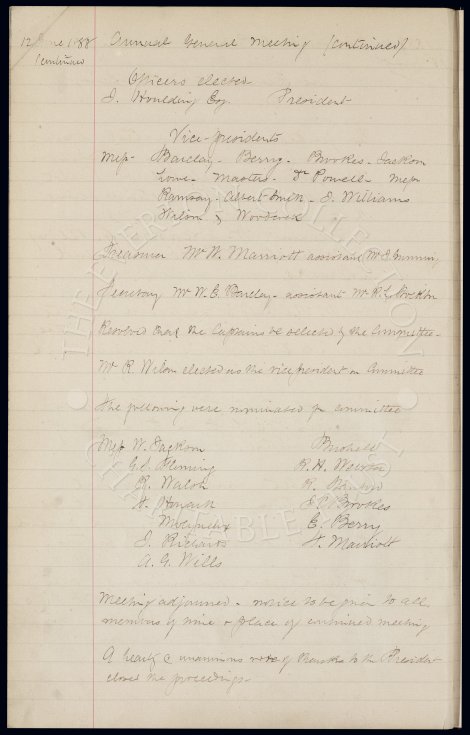 12 June 1888 Annual General Meeting (continued)
(continued
Officers elected
J. Houlding Esq. President
Vice-presidents
Mess- Barclay- Berry- Brookes- Jackson
Lowe- Masters- Dr Powell- Mess
Ramsay- Albert Smith- J. Williams
Wilson &
Treasurer Mr W. Marriott assistant Mr
Secretary Mr W. E. Barclay- assistant Mr R. Stockton
Resolved that the Captains be selected by the Committee-
Mr R. Wilson elected as the vice president on Committee
The following were nominated for committee
Mess W. Jackson
Geo. Fleming R. H. Webster
R. Walsh R.
H. Howarth E. Brookes
Molyneux E. Berry
J. Richards H. Marriott
A. G. Wills
Meeting adjourned- notice to be given to all
members of time & place of continued meeting
A hearty & unanimous vote of thanks to the President
closed the proceedings-
THE EVERTON COLLECTION
CHARITABLE TRUST